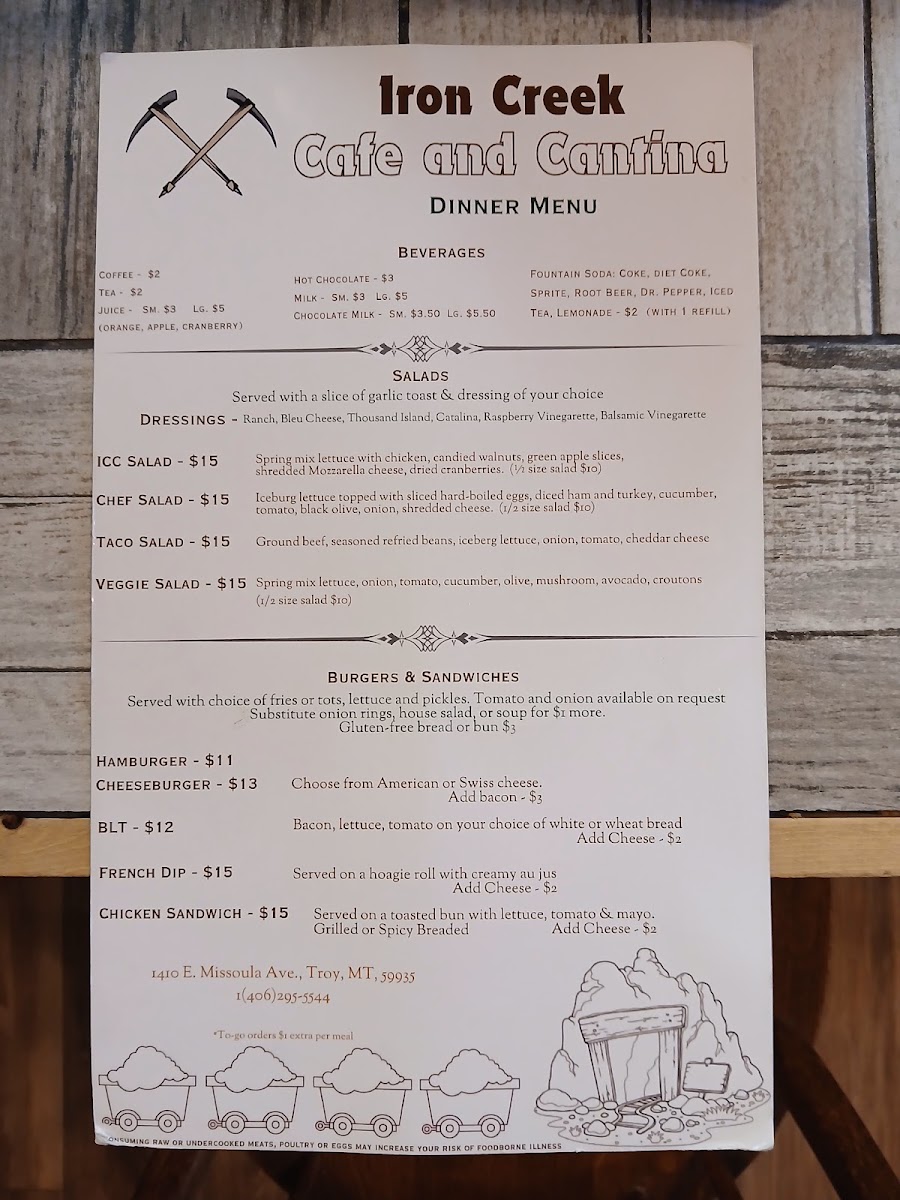 Iron Creek
Cafe and Cantina
DINNER MENU
BEVERAGES
COFFEE - $2
TEA - $2
JUICE - SM. $3 LG. $5
(ORANGE, APPLE, CRANBERRY)
HOT CHOCOLATE - $3
MILK - SM. $3 LG. $5
CHOCOLATE MILK - SM. $3.50 LG. $5.50
FOUNTAIN SODA: COKE, DIET COKE,
SPRITE, ROOT BEER, DR. PEPPER, ICED
TEA, LEMONADE - $2 (WITH 1 REFILL)
SALADS
Served with a slice of garlic toast & dressing of your choice
DRESSINGS - Ranch, Bleu Cheese, Thousand Island, Catalina, Raspberry Vinegarette, Balsamic Vinegarette
ICC SALAD - $15 Spring mix lettuce with chicken, candied walnuts, green apple slices,
shredded Mozzarella cheese, dried cranberries. (½ size salad $10)
CHEF SALAD - $15 Iceburg lettuce topped with sliced hard-boiled eggs, diced ham and turkey, cucumber,
tomato, black olive, onion, shredded cheese. (1/2 size salad $10)
TACO SALAD - $15 Ground beef, seasoned refried beans, iceberg lettuce, onion, tomato, cheddar cheese
VEGGIE SALAD - $15 Spring mix lettuce, onion, tomato, cucumber, olive, mushroom, avocado, croutons
(1/2 size salad $10)
BURGERS & SANDWICHES
Served with choice of fries or tots, lettuce and pickles. Tomato and onion available on request
Substitute onion rings, house salad, or soup for $1 more.
Gluten-free bread or bun $3
HAMBURGER - $11
CHEESEBURGER - $13 Choose from American or Swiss cheese.
Add bacon - $3
BLT - $12 Bacon, lettuce, tomato on your choice of white or wheat bread
Add Cheese - $2
FRENCH DIP - $15 Served on a hoagie roll with creamy au jus
Add Cheese - $2
CHICKEN SANDWICH - $15 Served on a toasted bun with lettuce, tomato & mayo.
Grilled or Spicy Breaded Add Cheese - $2
1410 E. Missoula Ave., Troy, MT, 59935
1(406)295-5544
*To-go orders $1 extra per meal
ONSUMING RAW OR UNDERCOOKED MEATS, POULTRY OR EGGS MAY INCREASE YOUR RISK OF FOODBORNE ILLNESS